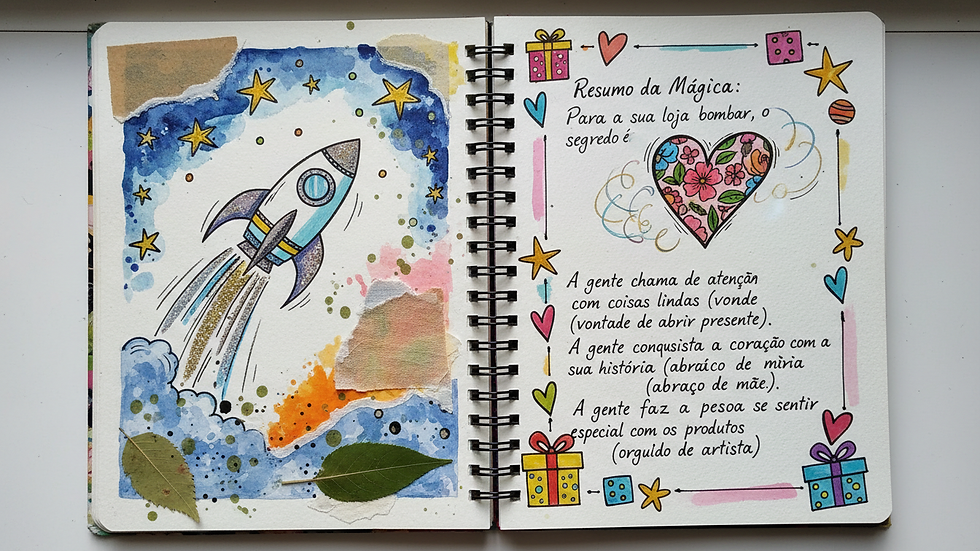 Resumo da Mágica:
Para a sua loja bombar, o
segredo é
A gente chama de atençãn
com coisas lindas (vonde
(vontade de abrir presente).
A gente conqusista a coração com a
sua história (abraíco de mìria
(abraço de mãe.).
A gente faz a pesoa se sentir
especial com os produtos
(orguldo de artista)